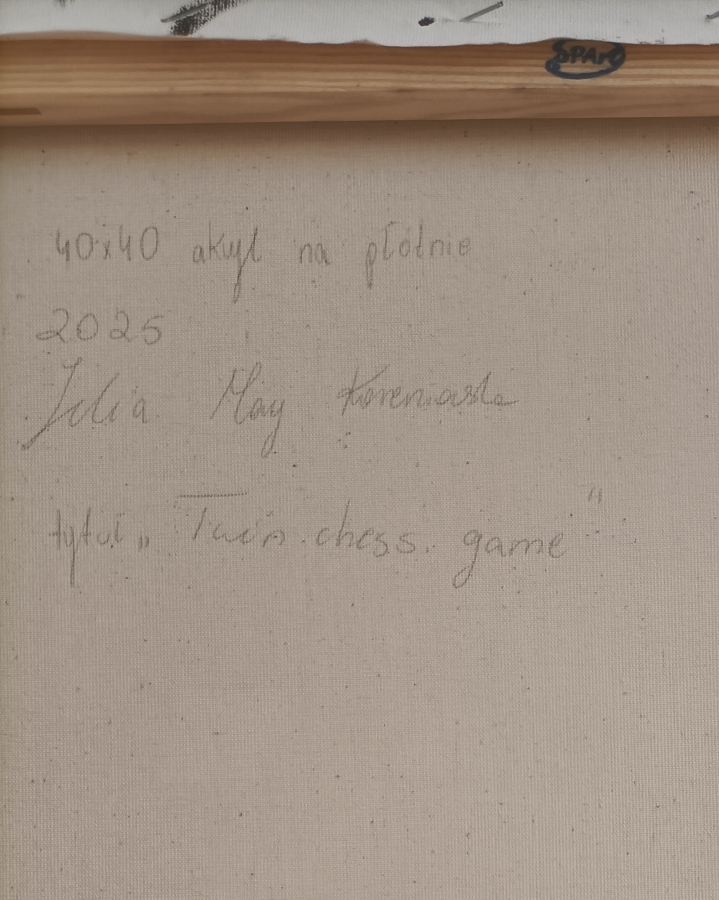 SPAM
40x40 akryl na płótnie
2025
Julia May
tytuł „Twin chess game"